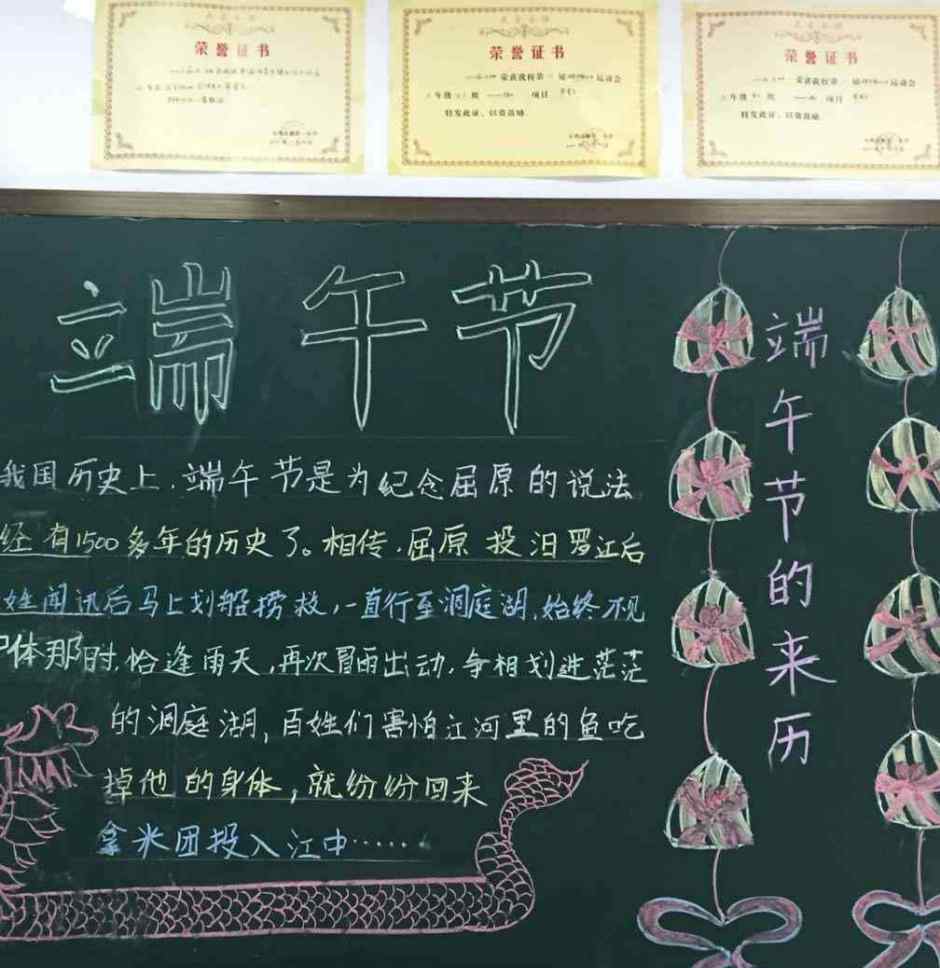 荣誉证书
荣誉证书
荣获我校第一届
运动会
年级
班
项目
特发此证，以资鼓励
荣誉证书
荣获我校第一届
运动会
年级
班
项目
特发此证，以资鼓励
端午节
我国历史上，端午节是为纪念屈原的说法
经有1500多年的历史了。相传，屈原投汨罗江后
姓闻讯后马上划船捞救，一直行至洞庭湖，始终不见
体那时，恰逢雨天，再次冒雨出动，争相划进茫茫
的洞庭湖，百姓们害怕江河里的鱼吃
掉他的身体，就纷纷回来
拿米团投入江中……
端午节的来历